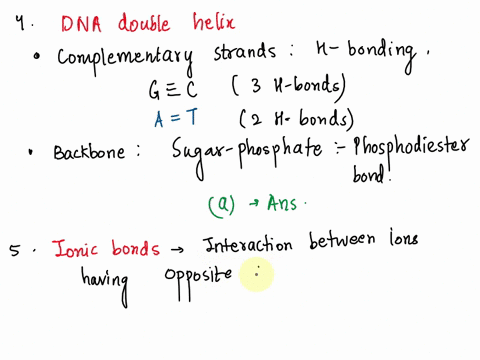 4. DNA double helix
• Complementary strands : H-bonding.
G≡C (3 H-bonds)
A=T (2 H-bonds)
• Backbone : Sugar-phosphate :- Phosphodiester
bond.
(a) → Ans.
5. Ionic bonds → Interaction between ions
having opposite